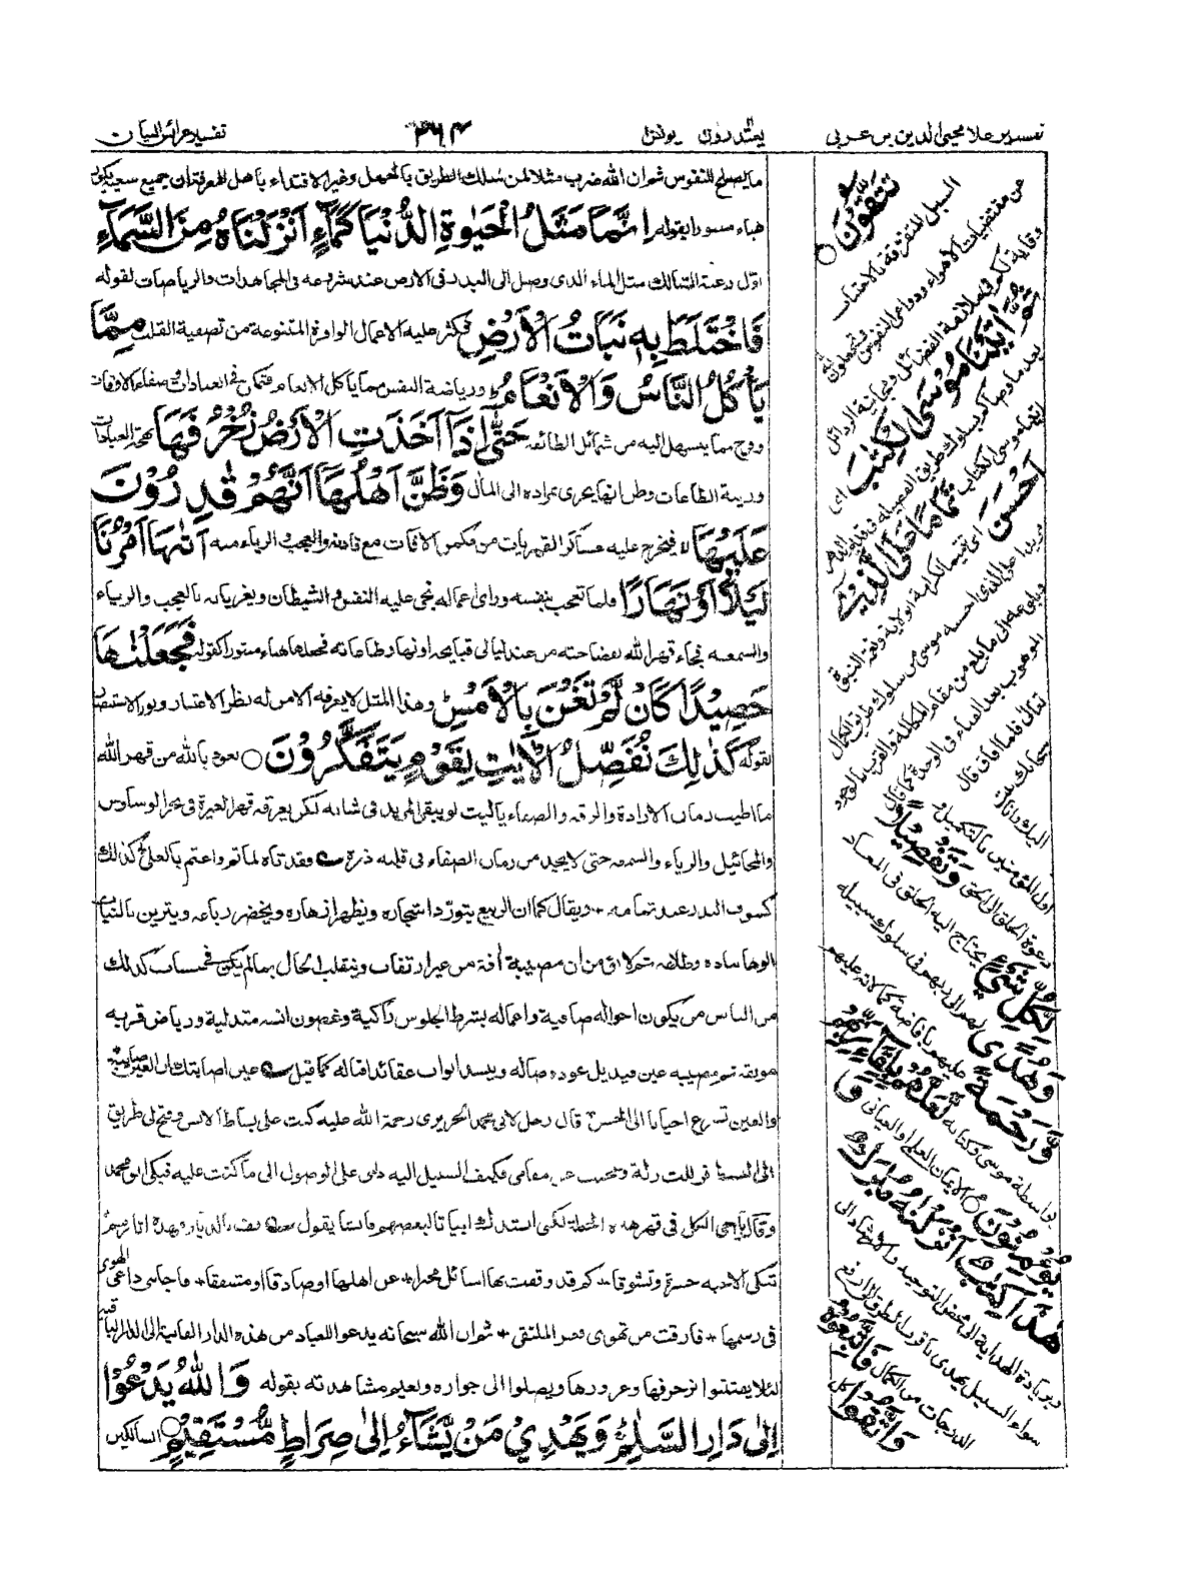 تفسير علامحيى الدين بن عربى
يعتذرون يونس
٣٦٤
تفسير عرائس البيان
ما يصلح للنفوس ثم ان الله ضرب مثلا لمن سلك الطريق بالجهل وغير الاقتداء باهل المعرفة ان جميع سعيه يكون
هباء منثورا بقوله اِنَّمَا مَثَلُ الْحَيٰوةِ الدُّنْيَا كَمَآءٍ اَنْزَلْنَاهُ مِنَ السَّمَآءِ
اول رغبة السالك مثل الماء الذى وصل الى البذر فى الارض عند شروعه فى المجاهدات والرياضات لقوله
فَاخْتَلَطَ بِهٖ نَبَاتُ الْاَرْضِ فيكثر عليه الاعمال الوافرة المتنوعة من تصفية القلب مِمَّا
يَاْكُلُ النَّاسُ وَالْاَنْعَامُ ورياضة النفس مما ياكل الانعام فتمكن فى العبادات وصفاء الاوقات
وروح مما يسهل اليه من شمائل الطائفة حَتّٰٓى اِذَآ اَخَذَتِ الْاَرْضُ زُخْرُفَهَا بهجة العبادات
وزينة الطاعات وظن انها يجرى بمراده الى المال وَظَنَّ اَهْلُهَآ اَنَّهُمْ قٰدِرُوْنَ
عَلَيْهَآ لا فيخرج عليه عساكر القهريات من مكمن الافات مع قافلة والعجب والرياء منه اَتٰهَآ اَمْرُنَا
لَيْلًا اَوْ نَهَارًا فلما تعجب بنفسه وراى اعماله بغى عليه النفس والشيطان ويغريانه بالعجب والرياء
والسمعة فجاء قهر الله بغضاحته من عند ليالى قبايحه او نهار طاعاته فجعلها هباء منثورا كقوله فَجَعَلْنٰهَا
حَصِيْدًا كَاَنْ لَّمْ تَغْنَ بِالْاَمْسِ وهذا المثل لا يعرفه الا من له نظر الاعتبار ونور الاستبصار
لقوله كَذٰلِكَ نُفَصِّلُ الْاٰيٰتِ لِقَوْمٍ يَّتَفَكَّرُوْنَ ○ نعوذ بالله من قهر الله
ما اطيب زمان الارادة والرقة والصفاء ياليت لو يبقى المريد فى شانه لكن يغرقه قهر الغيرة فى بحر الوساوس
والمخائيل والرياء والسمعة حتى لا يجد من زمان الصفاء فى قلبه ذرة فقدتاه لما تم واعتم بالعلاج كذلك
كسوف البدر عند تمامه + ويقال كما ان الربيع يتورد اشجاره ويظهر ازهاره ويخضر رباعه ويتزين بالنبات
وطلاعه ثم لا يؤمن ان مصيبة آفة من غير ارتقاب وينقلب الحال بما لم يكن فى حساب كذلك
من الناس من يكون احواله صافية واعماله بشرط الخلوص زاكية وغصون انسه متدلية ورياض قربه
مونقة ثم يصيبه عين فيذبل عود وصاله وينسد ابواب عقائد اقباله كما قيل عين اصابتك ان العين صائبة
والعين تسرع احيانا الى الحسن قال رجل لابى محمد الحريرى رحمة الله عليه كنت على بساط الانس وفتح لى طريق
الى البسط فزللت زلة وحجبت عن مقامى فكيف السبيل اليه دلنى على الوصول الى ما كنت عليه فبكى ابو محمد
وقال يا اخى الكل فى قهر هذه الخطة لكنى انشدك ابياتا لبعضهم فانشا يقول قف بالديار فهذه اثارهم
تبكى الاحبة حسرة وتشوقا + كم قد وقفت بها اسائل مخبرا + عن اهلها او صادقا او مشفقا + فاجابنى داعى الهوى
فى رسمها + فارقت من تهوى فعز الملتقى + ثم ان الله سبحانه يدعو العباد من هذه الدار الفانية الى الدار الباقية
لئلا يفتتنوا بزخرفها وغرورها ويصلوا الى جواره ونعيم مشاهدته بقوله وَاللّٰهُ يَدْعُوْا
اِلٰى دَارِ السَّلٰمِ وَيَهْدِيْ مَنْ يَّشَآءُ اِلٰى صِرَاطٍ مُّسْتَقِيْمٍ ○ السالكين
السبل المتفرقة بالاجتناب
عن مقتضيات الاهواء ودواعى النفوس وتجعلون الله
تَتَّقُوْنَ ○
وقاية لكم فى ملازمة الفضائل ومجانبة الرذائل
ثُمَّ اٰتَيْنَا مُوْسَى الْكِتٰبَ اى
بعد ما وصاكم بسلوك طريق الفضيلة
اتينا موسى الكتاب تَمَامًا عَلَى الَّذِيْٓ
اَحْسَنَ اى تتميم الكرامة الولاية ونعمة النبوة
مزيدا على الذى احسنه موسى من سلوك طريق الكمال
وبلوغه الى ما بلغ من مقام المكالمة والقرب بالوجود
الموهوب بعد الفناء فى الوحدة كما قال
تعالى فلما افاق قال
سبحانك تبت
اليك وانا
اول المؤمنين بالتكميل و
دعوة الخلق الى الحق وَتَفْصِيْلًا
لِّكُلِّ شَيْءٍ يحتاج اليه الخلق فى المعاد
وَّهُدًى لهم الى ربهم فى سلوك سبيله
وَّرَحْمَةً عليهم بافاضة كمالاته عليهم
لَّعَلَّهُمْ بِلِقَآءِ رَبِّهِمْ
بواسطة موسى وكتابه
يُؤْمِنُوْنَ ○ الايمان العلمى او العيانى وَ
هٰذَا كِتٰبٌ اَنْزَلْنٰهُ مُبٰرَكٌ
بزيادة الهداية الى محض التوحيد والارشاد الى
سواء السبيل يهدى باقرب الطرق الى ارفع
الدرجات من الكمال فَاتَّبِعُوْهُ
وَاتَّقُوْا كل